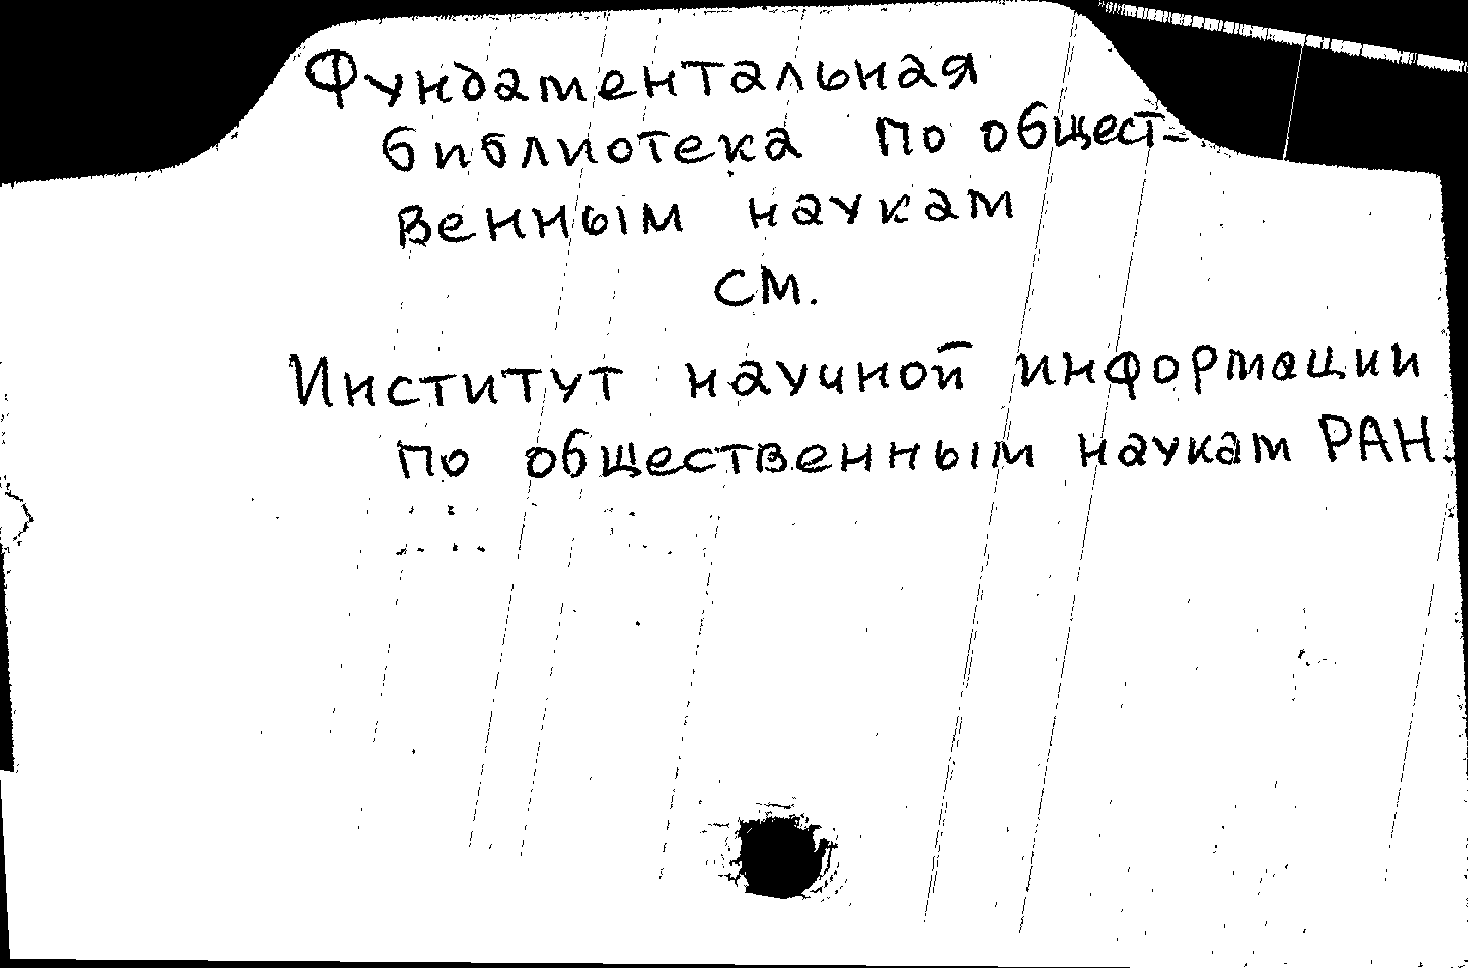 Фундаментальная
библиотека по общест-
венным наукам
см.
Институт научной информации
по общественным наукам РАН.